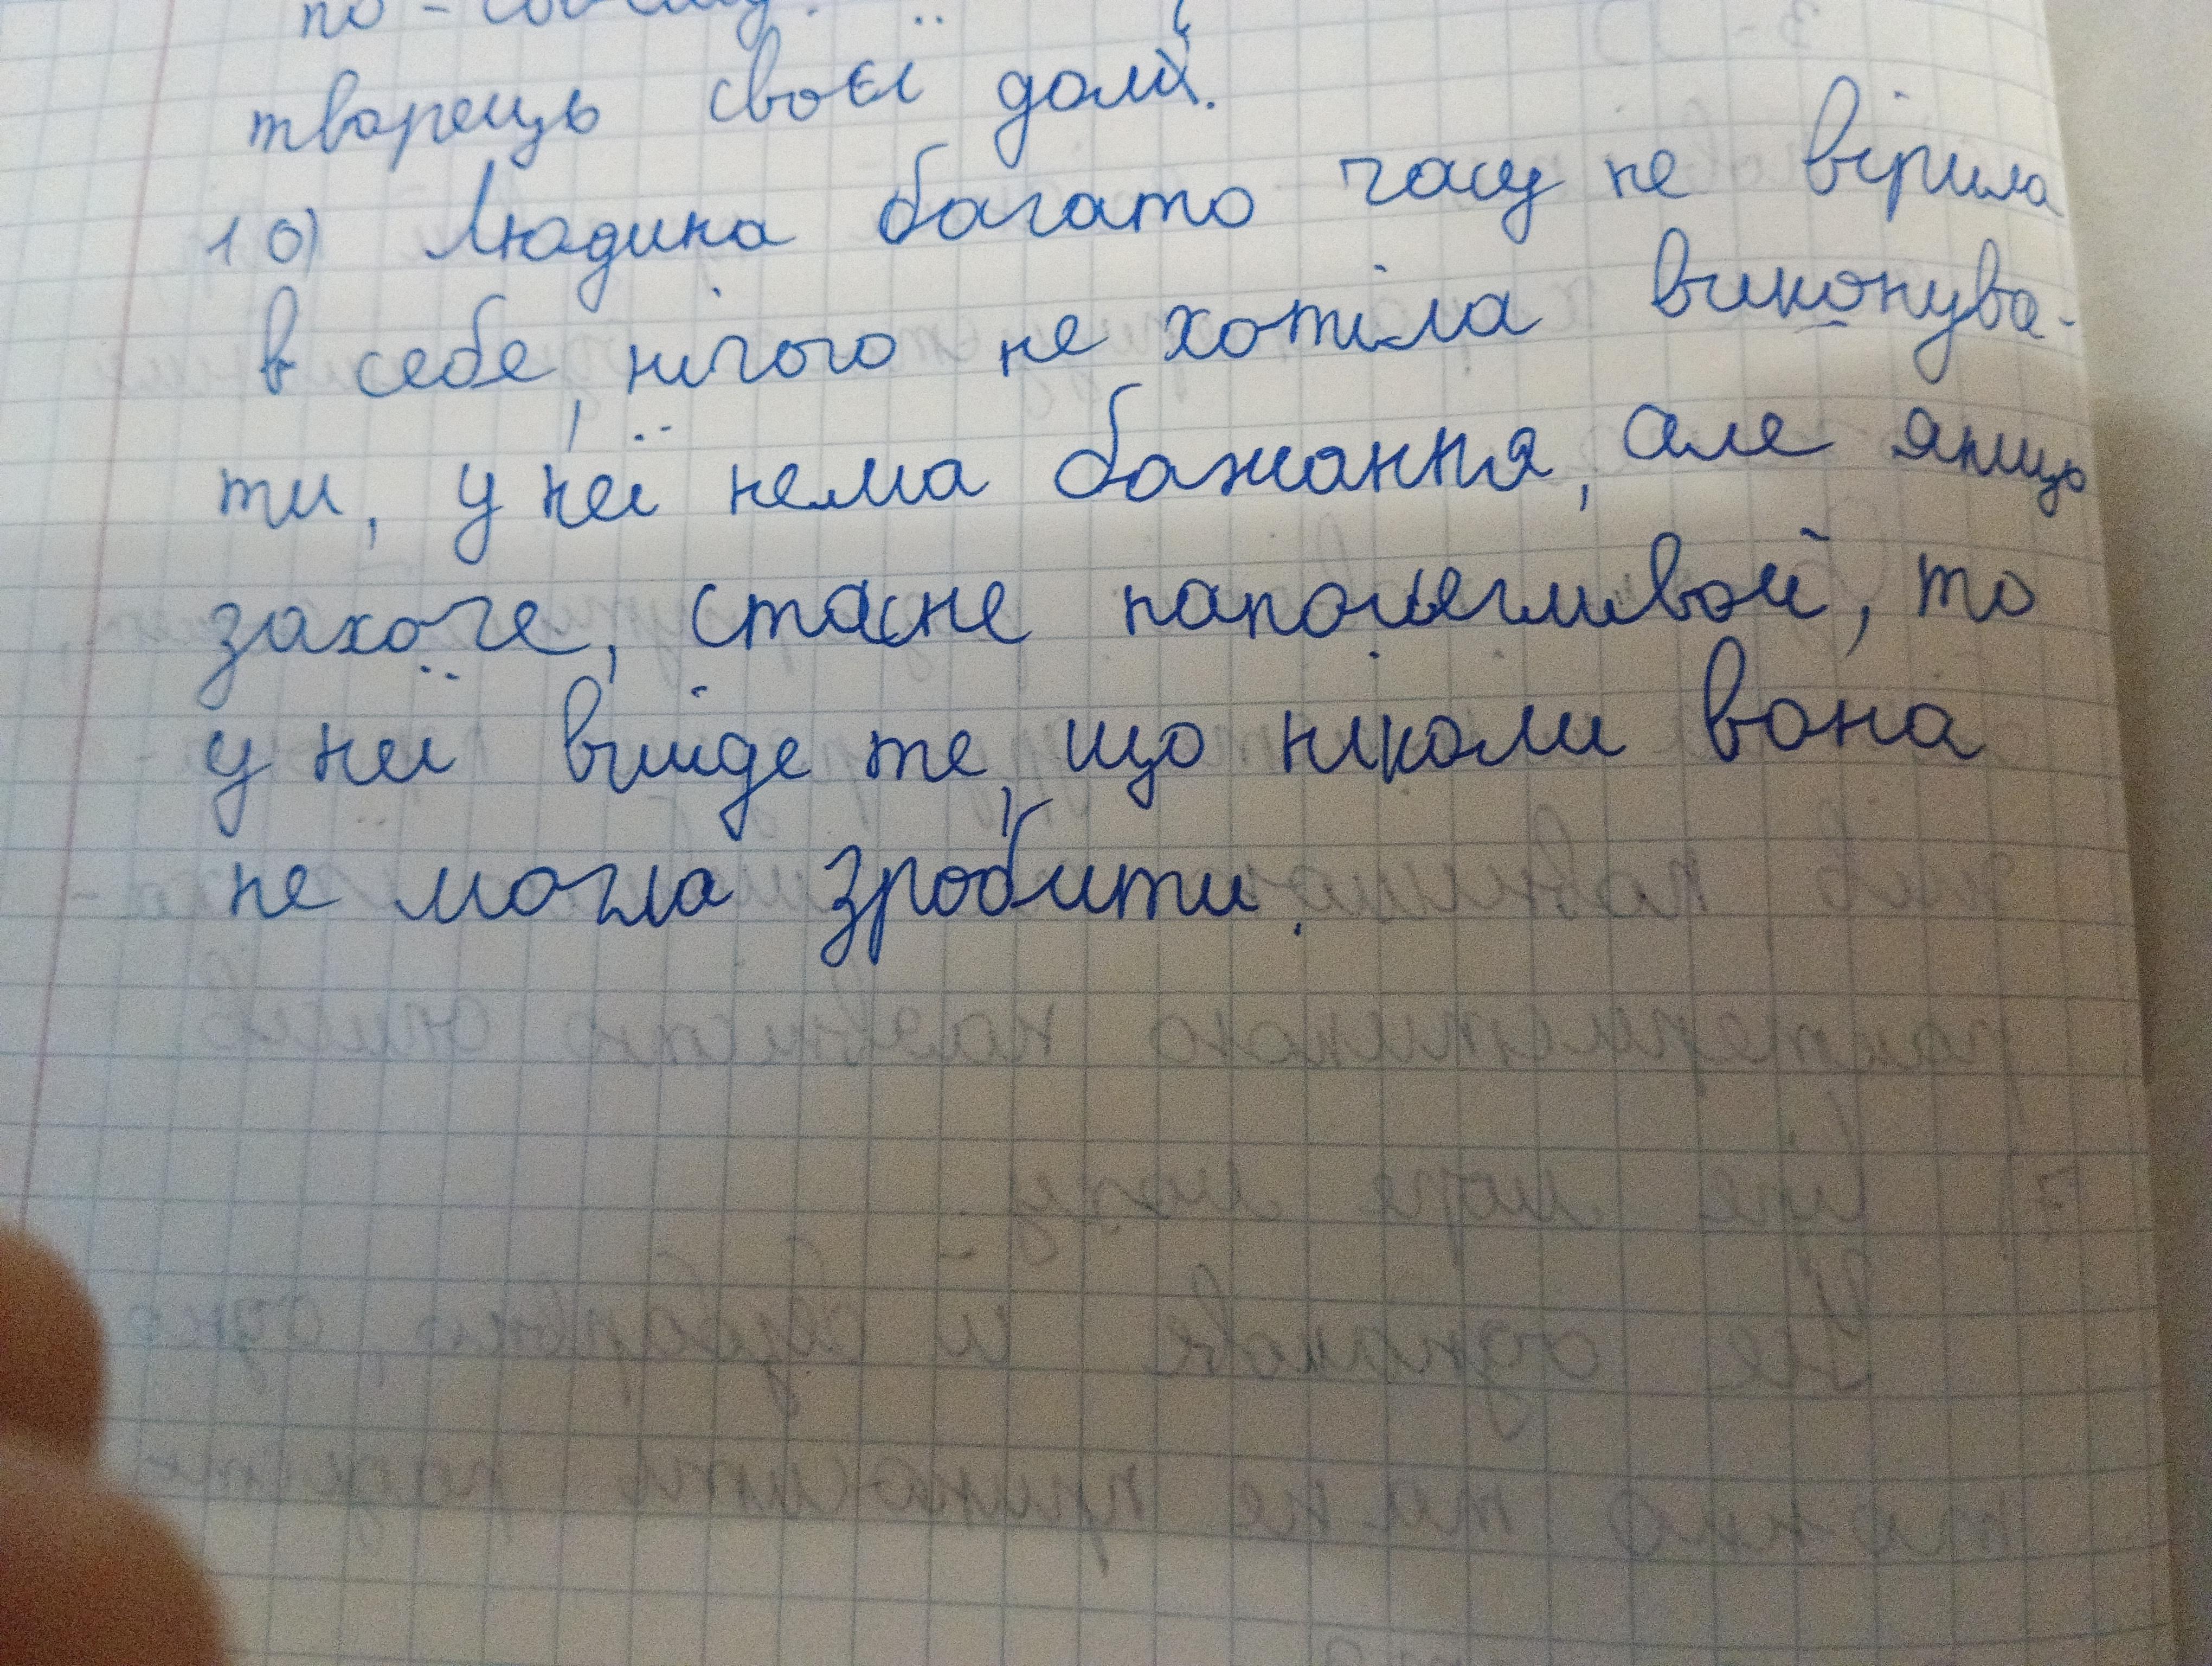 по - своєму.
творець своєї долі.
10) Людина багато часу не вірила
в себе, нічого не хотіла виконува-
ти, у неї нема бажання, але якщо
захоче, стане наполегливой, то
у неї вийде те, що ніколи вона
не могла зробити.